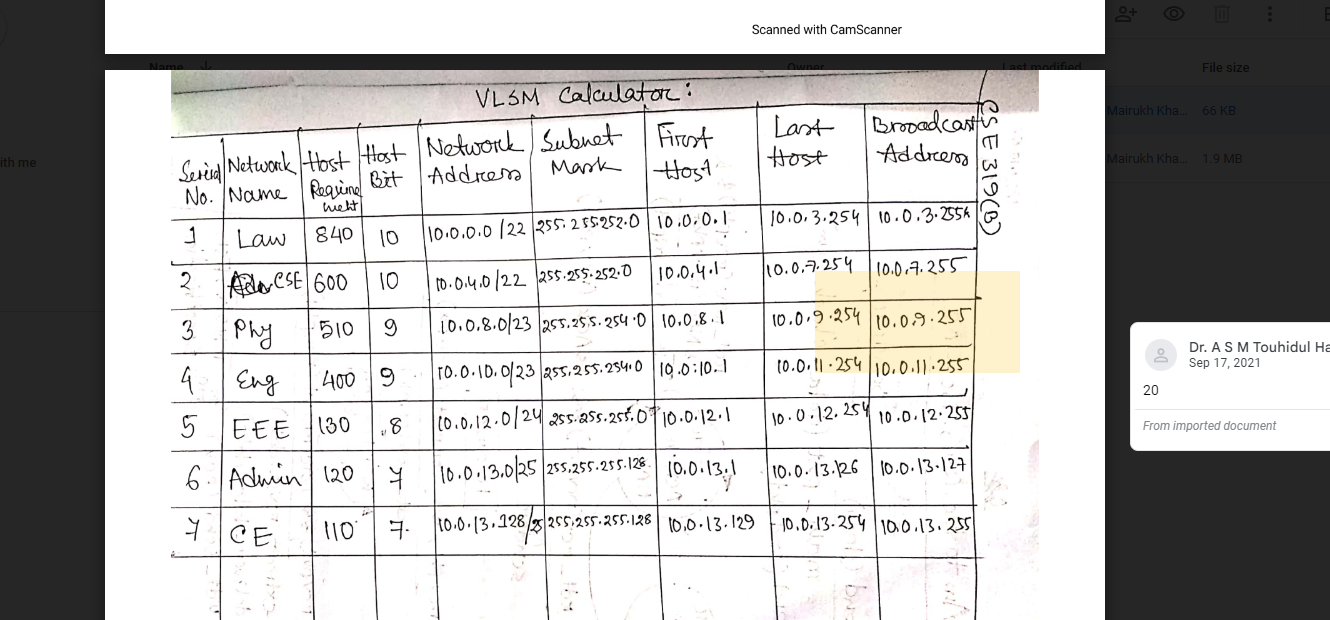 Scanned with CamScanner
Name ↓ Owner Last modified File size
Mairukh Kha... 66 KB
ith me
Mairukh Kha... 1.9 MB
VLSM Calculator:
CSE 319(B)
Serial No. Network Name Host Requirement Host Bit Network Address Subnet Mask First Host Last Host Broadcast Address
1 Law 840 10 10.0.0.0/22 255.255.252.0 10.0.0.1 10.0.3.254 10.0.3.255
2 CSE 600 10 10.0.4.0/22 255.255.252.0 10.0.4.1 10.0.7.254 10.0.7.255
3 Phy 510 9 10.0.8.0/23 255.255.254.0 10.0.8.1 10.0.9.254 10.0.9.255
4 Eng 400 9 10.0.10.0/23 255.255.254.0 10.0.10.1 10.0.11.254 10.0.11.255
5 EEE 130 8 10.0.12.0/24 255.255.255.0 10.0.12.1 10.0.12.254 10.0.12.255
6 Admin 120 7 10.0.13.0/25 255.255.255.128 10.0.13.1 10.0.13.126 10.0.13.127
7 CE 110 7 10.0.13.128/25 255.255.255.128 10.0.13.129 10.0.13.254 10.0.13.255
Dr. A S M Touhidul Ha
Sep 17, 2021
20
From imported document